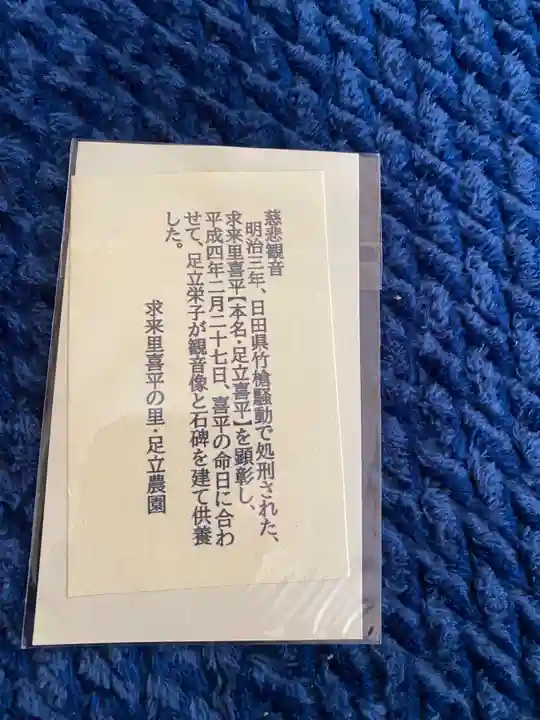 慈悲観音
明治三年、日田県竹槍騒動で処刑された、
求来里喜平【本名・足立喜平】を顕彰し、
平成四年二月二十七日、喜平の命日に合わ
せて、足立栄子が観音像と石碑を建て供養
した。
求来里喜平の里・足立農園